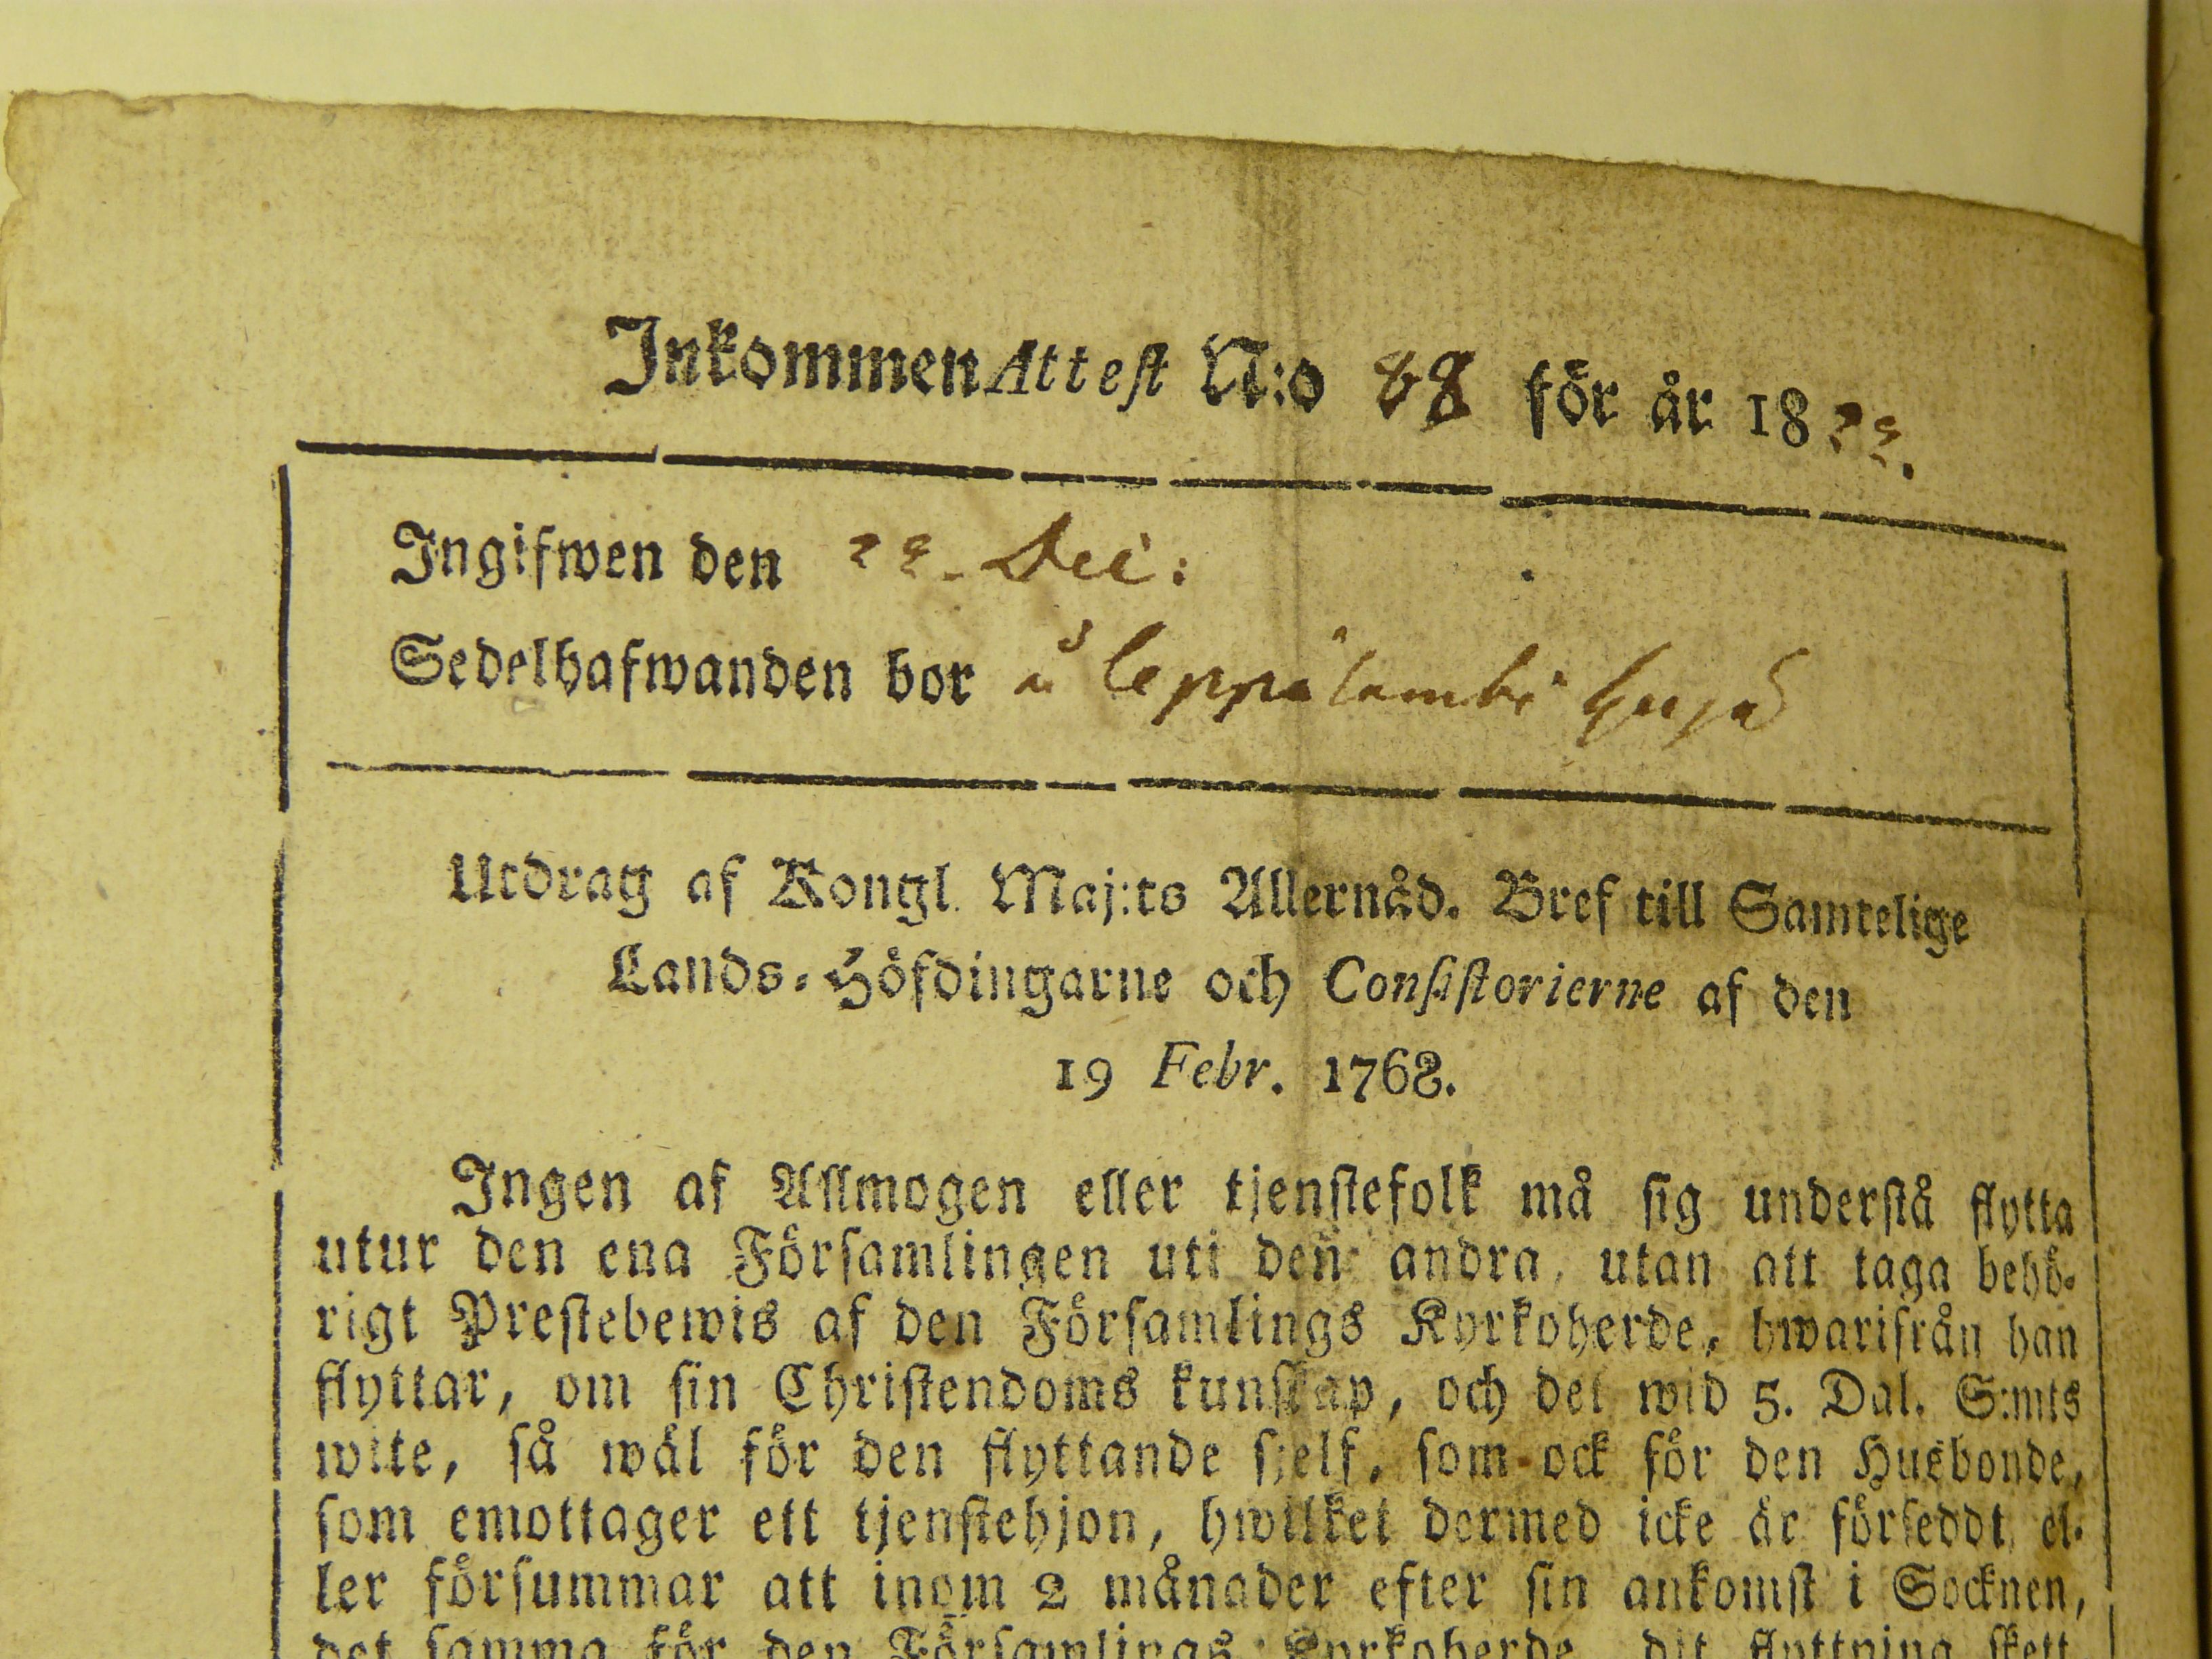 Inkommen Attest N:o 88 för år 1822.
Ingifwen den 22. Dec:
Sedelhafwanden bor å Leppälambi
Utdrag af Kongl. Maj:ts Allernåd. Bref till Samtelige
Lands-Höfdingarne och Consistorierne af den
19 Febr. 1768.
Ingen af Allmogen eller tjenstefolk må sig understå flytta
utur den ena Församlingen uti den andra, utan att taga behö-
rigt Prestebewis af den Församlings Kyrkoherde, hwarifrån han
flyttar, om sin Christendoms kunskap, och det wid 5. Dal. S:mts
wite, så wäl för den flyttande sjelf, som ock för den Husbonde,
som emottager ett tjenstehjon, hwilket dermed icke är förseddt, el-
ler försummar att inom 2 månader efter sin ankomst i Socknen,
det samma för den Församlings Kyrkoherde, dit flyttning skett